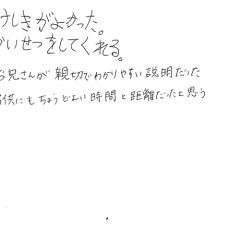 けしきがよかった。
かいせつをしてくれる。
お兄さんが親切でわかりやすい説明だった
子供にもちょうどよい時間と距離だったと思う